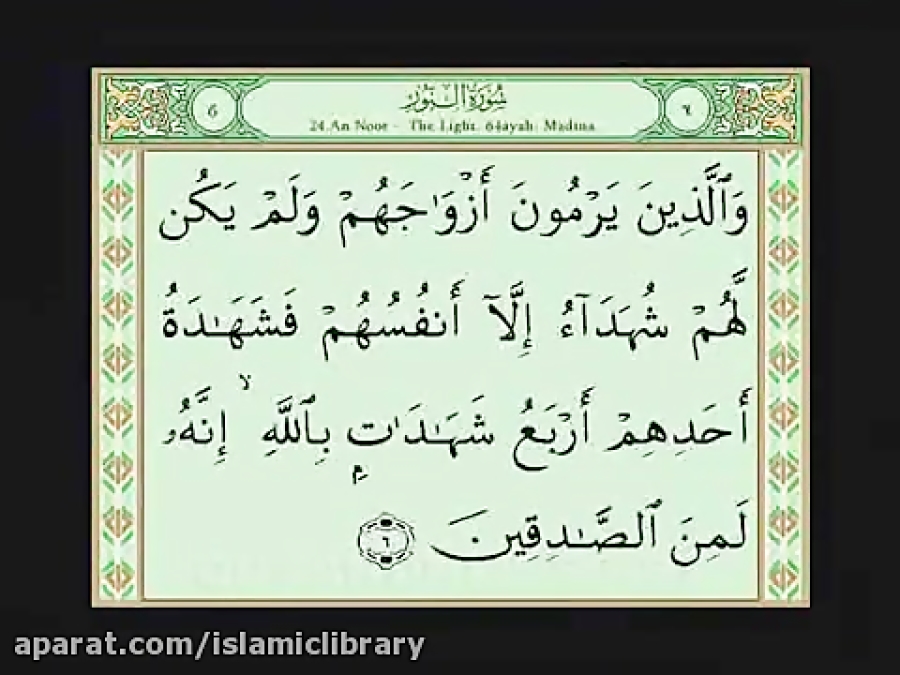 سُورَةُ النُّورِ
6 ٦
24.An Noor - The Light. 64ayah: Madina
وَٱلَّذِينَ يَرْمُونَ أَزْوَٰجَهُمْ وَلَمْ يَكُن
لَّهُمْ شُهَدَآءُ إِلَّآ أَنفُسُهُمْ فَشَهَـٰدَةُ
أَحَدِهِمْ أَرْبَعُ شَهَـٰدَٰتٍۭ بِٱللَّهِ ۙ إِنَّهُۥ
لَمِنَ ٱلصَّـٰدِقِينَ ٦
aparat.com/islamiclibrary